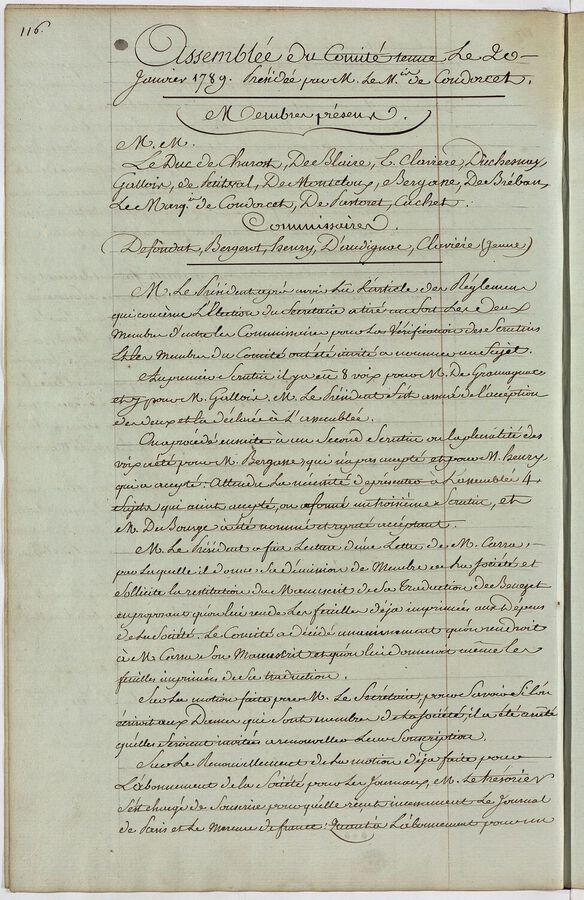 116.
Assemblée du Comité tenue Le 20
Janvier 1789. Présidée par M. Le M.is de Condorcet.
Membres présens.
M. M.
Le Duc de Charost, De Blaire, E. Claviere, Duchesnay
Gallois, de Montcloux, Bergasse, De Bréban
Le Marq.is de Condorcet, De Pastoret, Cuchet.
Commissaires.
Defondat, Bergerot, henry, D'audignac, Claviére (Jeune)
M. Le Président après avoir Lû L'article des Réglemens
qui concerne L'Election du Secrétaire a tiré au Sort Les deux
Membres d'entre les Commissaires pour La Vérification des Scrutins
Et les Membres du Comité ont été invités a nommer un Sujet.
Au premier Scrutin il y a eu 8 voix pour M. De Gramagnac
et 7 pour M. Gallois. M. Le Président S'est assuré de l'acception
des deux et l'a déclarée à L'assemblée.
On a procédé ensuite à un Second Scrutin ou la pluralité des
voix a été pour M. Bergasse, qui n'a pas accepté et pour M. henry
qui a accepté. Attendu La nécessité de présenter à L'assemblée 4
Sujets qui aient accepté, on a formé un troisième Scrutin, et
M. Du Bourge a été nommé et réputé acceptant.
M. Le Président a fait Lecture d'une Lettre de M. Carra,
par Laquelle il donne Sa démission de Membre de la Société et
Sollicite la restitution du Manuscrit de Sa Traduction de Benezet
en proposant qu'on lui rende Les feuilles déja imprimées aux Dépens
de La Société. Le Comité a décidé unanimement qu'on rendroit
à M. Carra Son Manuscrit et qu'on lui donneroit même les
feuilles imprimées de Sa traduction.
Sur La motion faite par M. Le Secrétaire, pour Savoir Si L'on
écriroit aux Dames qui Sont membres de La Société, il a été arrêté
qu'elles Seroient invitées a renouveller Leur Souscription.
Sur Le Renouvellement de La motion déja faite pour
L'abonnement de la Société pour Les Journaux, M. Le trésorier
S'est chargé de Souscrire pour qu'elle reçut incessament Le Journal
de Paris et Le Mercure de france: Quant à L'abonnement pour un